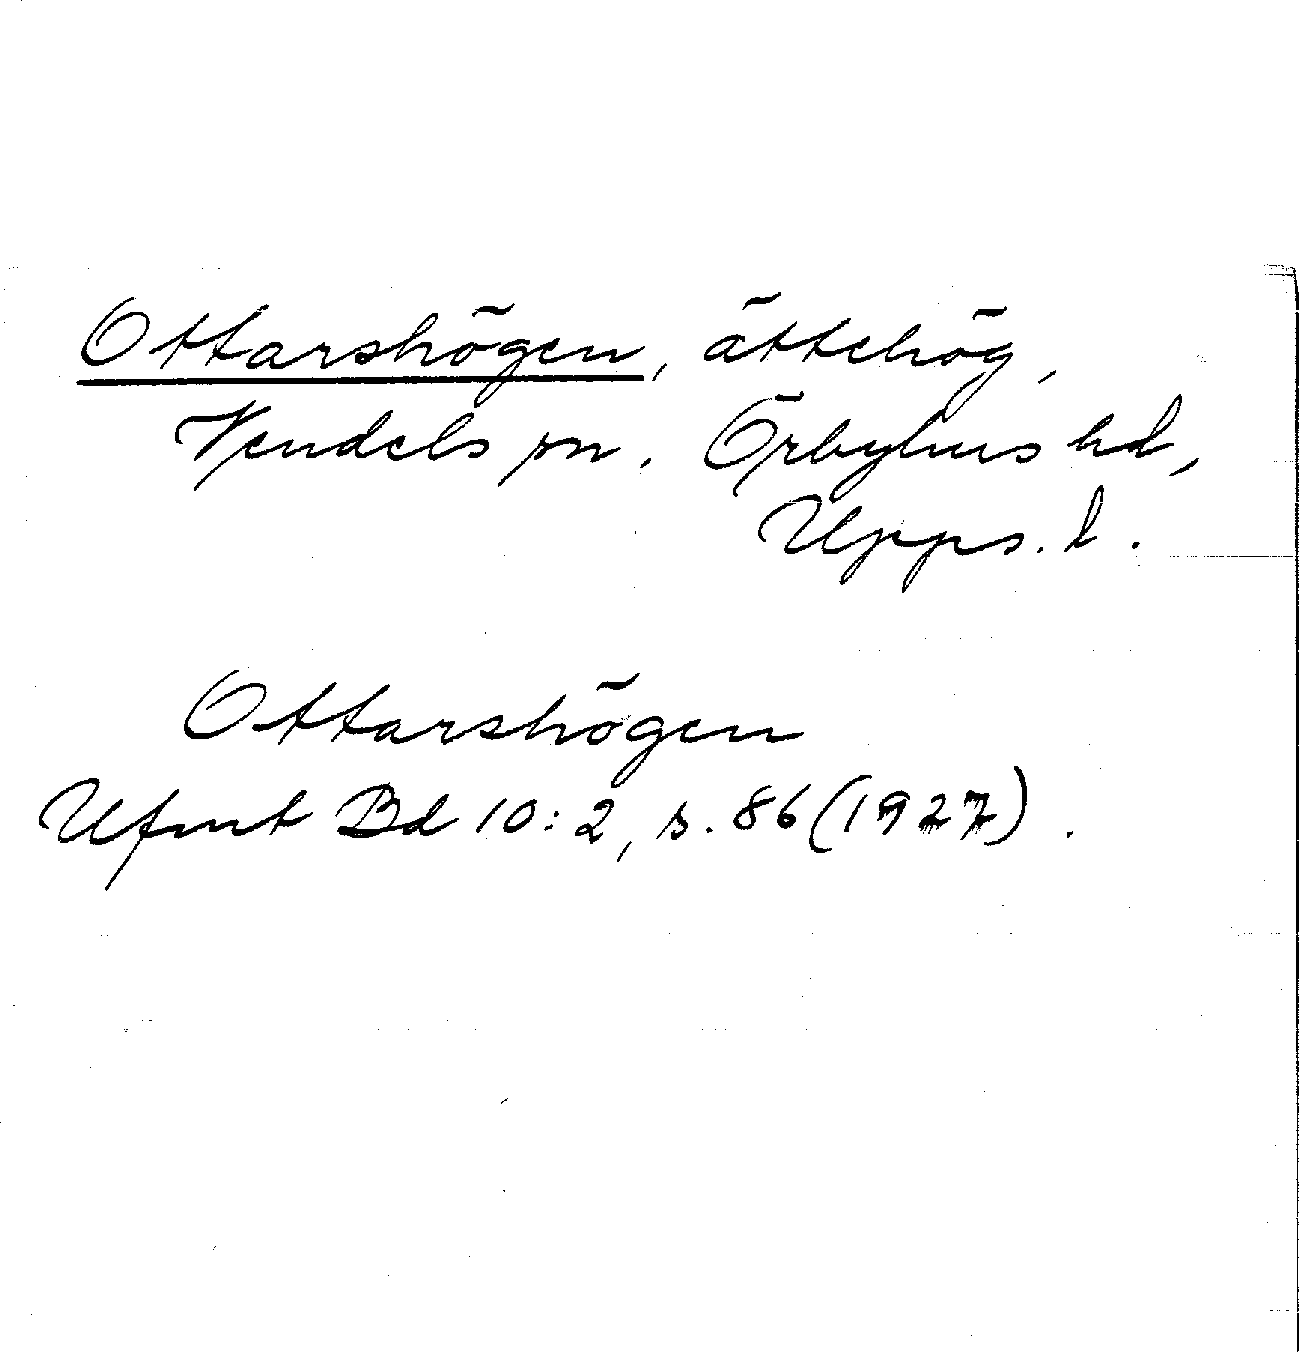 Ottarshögen, ättehög,
Vendels sn, Örbyhus hd,
Upps. l.
Ottarshögen
Ufmt Bd 10:2, s. 86 (1927).